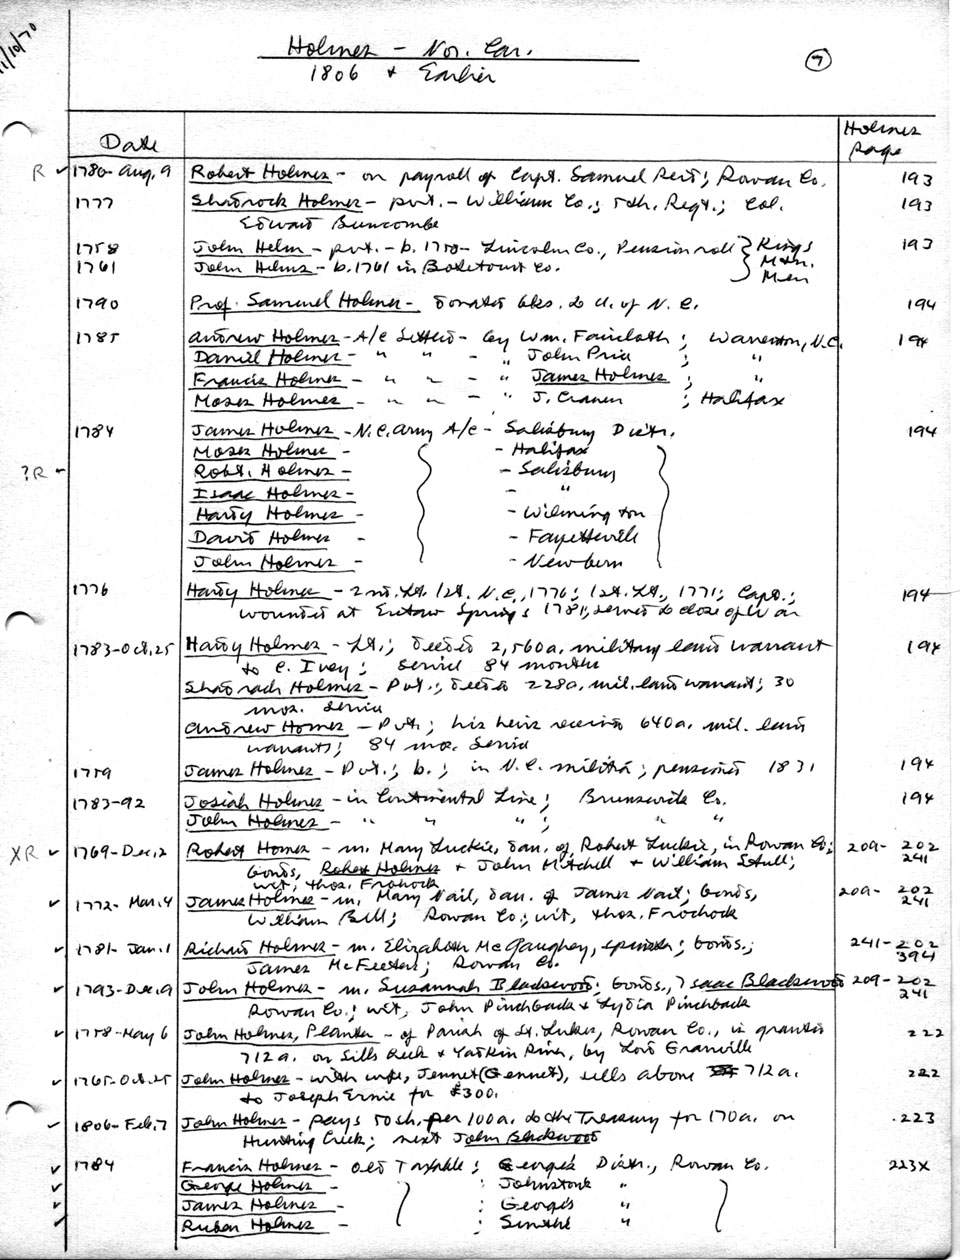 11/10/70
Holmes - Nor. Car.
1806 & Earlier
7
Date
Holmes Page
R ✓ 1780- Aug. 9 Robert Holmes - on payroll of Capt. Samuel Reid; Rowan Co. 193
1777 Shadrock Holmes - pvt. - William Co.; 5th. Regt.; Col. 193
Edward Buncombe
1758 John Helm - pvt. - b. 1758 - Lincoln Co., Pension roll } Kings 193
1761 John Helms - b. 1761 in Botetourt Co. Mtn. Men
1790 Prof. Samuel Holmes - donated bks. to U. of N.C. 194
1785 Andrew Holmes - A/c settled - by Wm. Faircloth; Warrenton, N.C. 194
Daniel Holmes - " " - " John Price ; "
Francis Holmes - " " - " James Holmes ; "
Moses Holmes - " " - " J. Craven ; Halifax
1784 James Holmes - N.C. Army A/c - Salisbury Distr. 194
Moses Holmes - - Halifax
?R - Robt. Holmes - - Salisbury
Isaac Holmes - - "
Hardy Holmes - - Wilmington
David Holmes - - Fayetteville
John Holmes - - Newbern
1776 Hardy Holmes - 2nd. Lt. 1st. N.C., 1776; 1st. Lt., 1777; Capt.; 194
wounded at Eutaw Springs 1781; served to close of War
1783-Oct. 25 Hardy Holmes - Lt.; deeded 2,560a. military land warrant 194
to C. Ivey; service 84 months
Shadrach Holmes - Pvt.; deeded 228a. mil. land warrant; 30
mos. service
Andrew Homes - Pvt.; his heirs received 640a. mil. land
warrants; 84 mos. service
1759 James Holmes - Pvt.; b.; in N.C. militia; pensioned 1831 194
1783-92 Josiah Holmes - in Continental Line; Brunswick Co. 194
John Holmes - " " "; " "
XR ✓ 1769-Dec. 2 Robert Homes - m. Mary Luckie, dau. of Robert Luckie, in Rowan Co; 209- 202
bonds, Robert Holmes & John Mitchell & William Stull; 241
wit, Thos. Frohock
✓ 1772- Mar. 4 James Holmes - m. Mary Nail, dau. of James Nail; bonds, 209- 202
William Bell; Rowan Co; wit, Thos. Frohock 241
✓ 1781- Jan. 1 Richard Holmes - m. Elizabeth McGaughey, spinster; bonds.; 241-202
James McFeeters; Rowan Co. 394
✓ 1793-Dec. 9 John Holmes - m. Susannah Blackwood; bonds., Isaac Blackwood 209-202
Rowan Co.; wit, John Pinchback & Lydia Pinchback 241
✓ 1758-May 6 John Holmes, Planter - of Parish of St. Lukes, Rowan Co., is granted 222
712a. on Sills Creek & Yadkin River, by Lord Granville
✓ 1765-Oct. 25 John Holmes - with wife, Jennet (Gennet), sells above 712a. 222
to Joseph Ernie for £300.
✓ 1806-Feb. 7 John Holmes - pays 50 sh. per 100a. to the Treasury for 170a. on 223
Hunting Creek; next John Blackwood
✓ 1784 Francis Holmes - Old Taxable; George's Distr., Rowan Co. 223X
✓ George Holmes - ; Johnston's "
✓ James Holmes - ; George's "
✓ Ruban Holmes - ; "